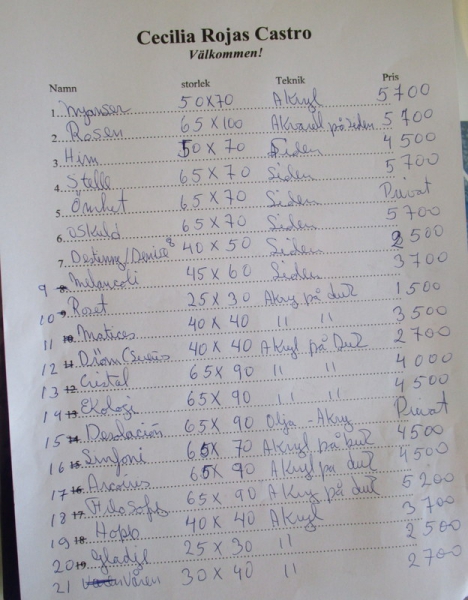 Cecilia Rojas Castro
Välkommen!
Namn storlek Teknik Pris
1. Nyanser 50x70 Akryl 5700
2. Rosen 65x100 Akvarel på siden 5700
3. Him 50x70 Siden 4500
4. Stelle 65x70 Siden 5700
5. Ömhet 65x70 Siden Privat
6. oskuld 65x70 Siden 5700
7. Destiny/Denise 8 40x50 Siden 2500
9 8. Melancoli 45x60 Siden 3700
10 9. Roset 25x30 Akry på duk 1500
11 10. Matices 40x40 11 11 3500
12 11. Dröm 40x40 Akryl på Duk 2700
13 12. Cristal 65x90 11 11 4000
14 13. Ekologi 65x90 11 11 4500
15 14. Desolación 65x90 Olja - Akry Privat
16 15. Sinfoni 65x70 Akryl på duk 4500
17 16. Arcoiris 65x90 Akryl på duk 4500
18 17. Filosofs 65x90 Akry på duk 5200
19 18. Hopp 40x40 Akryl 3700
20 19. Glädje 25x30 11 2500
21 Våren 30x40 11 2700